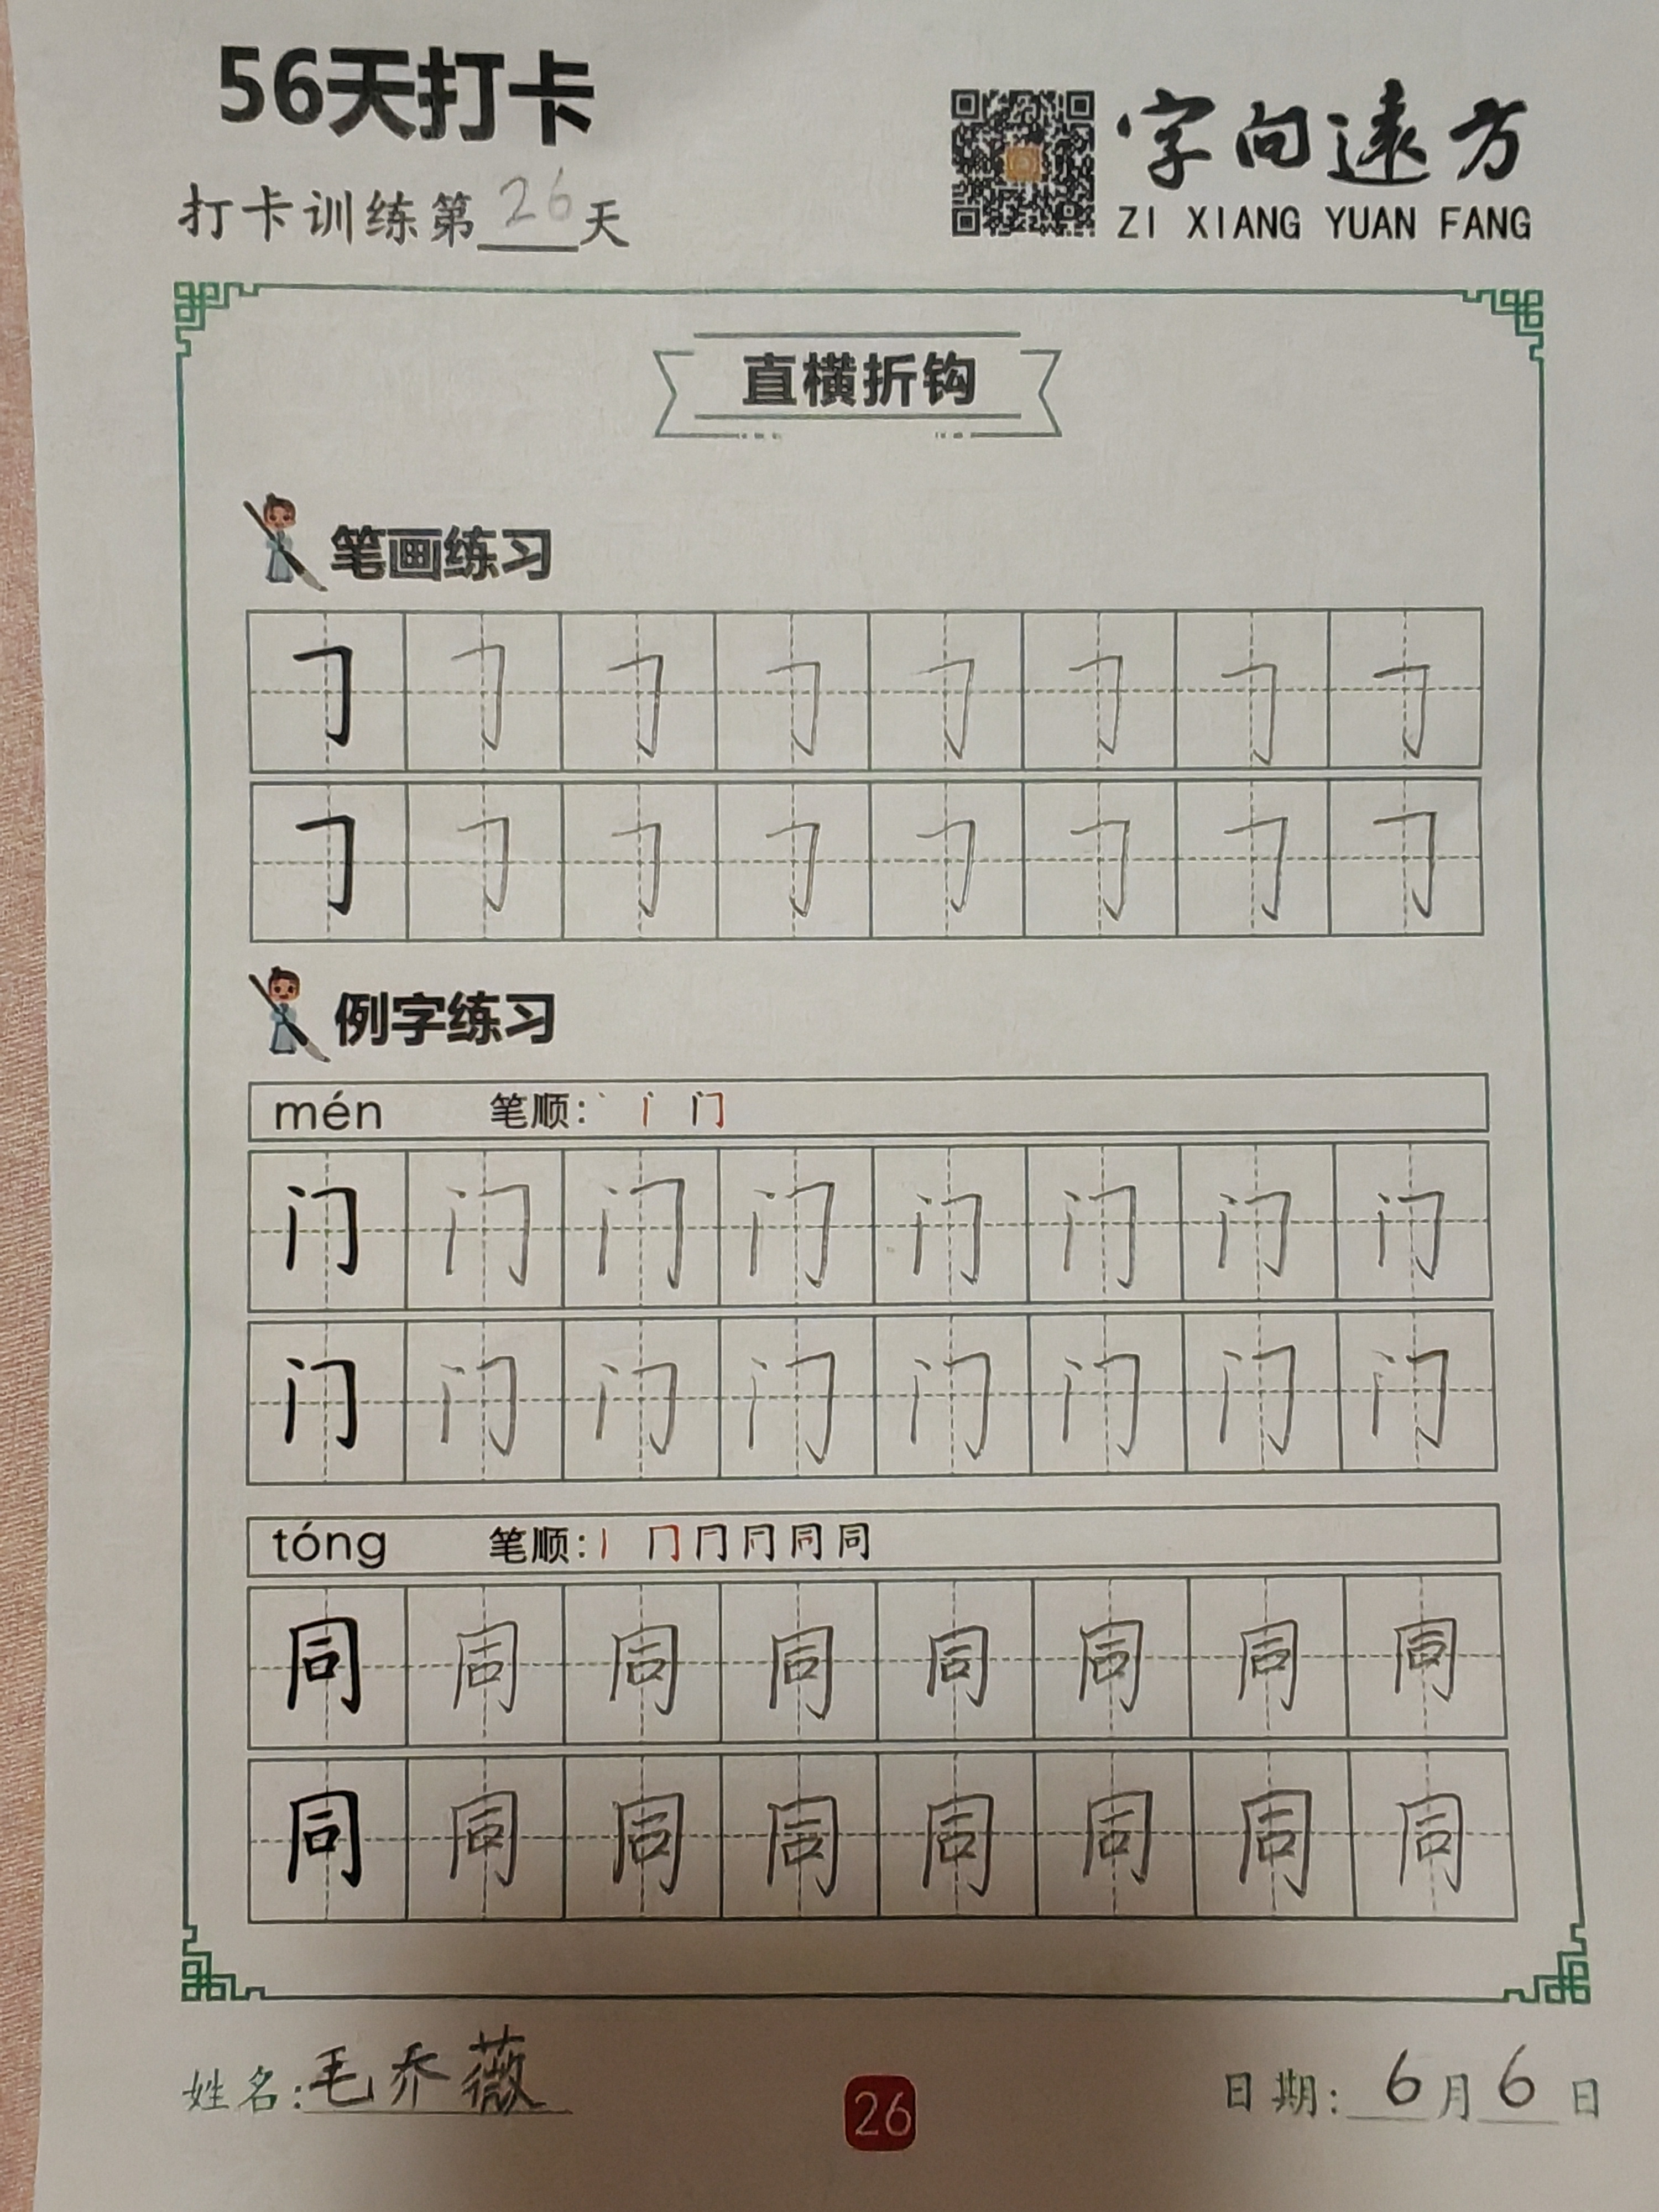 56天打卡
字向遠方
ZI XIANG YUAN FANG
打卡训练第26天
直横折钩
笔画练习
𠃌 𠃌 𠃌 𠃌 𠃌 𠃌 𠃌 𠃌
𠃌 𠃌 𠃌 𠃌 𠃌 𠃌 𠃌 𠃌
例字练习
mén 笔顺: 丶 门
门 门 门 门 门 门 门 门
门 门 门 门 门 门 门 门
tóng 笔顺: 丨 冂 同 同
同 同 同 同 同 同 同 同
同 同 同 同 同 同 同 同
姓名:毛乔薇
26
日期: 6月6日